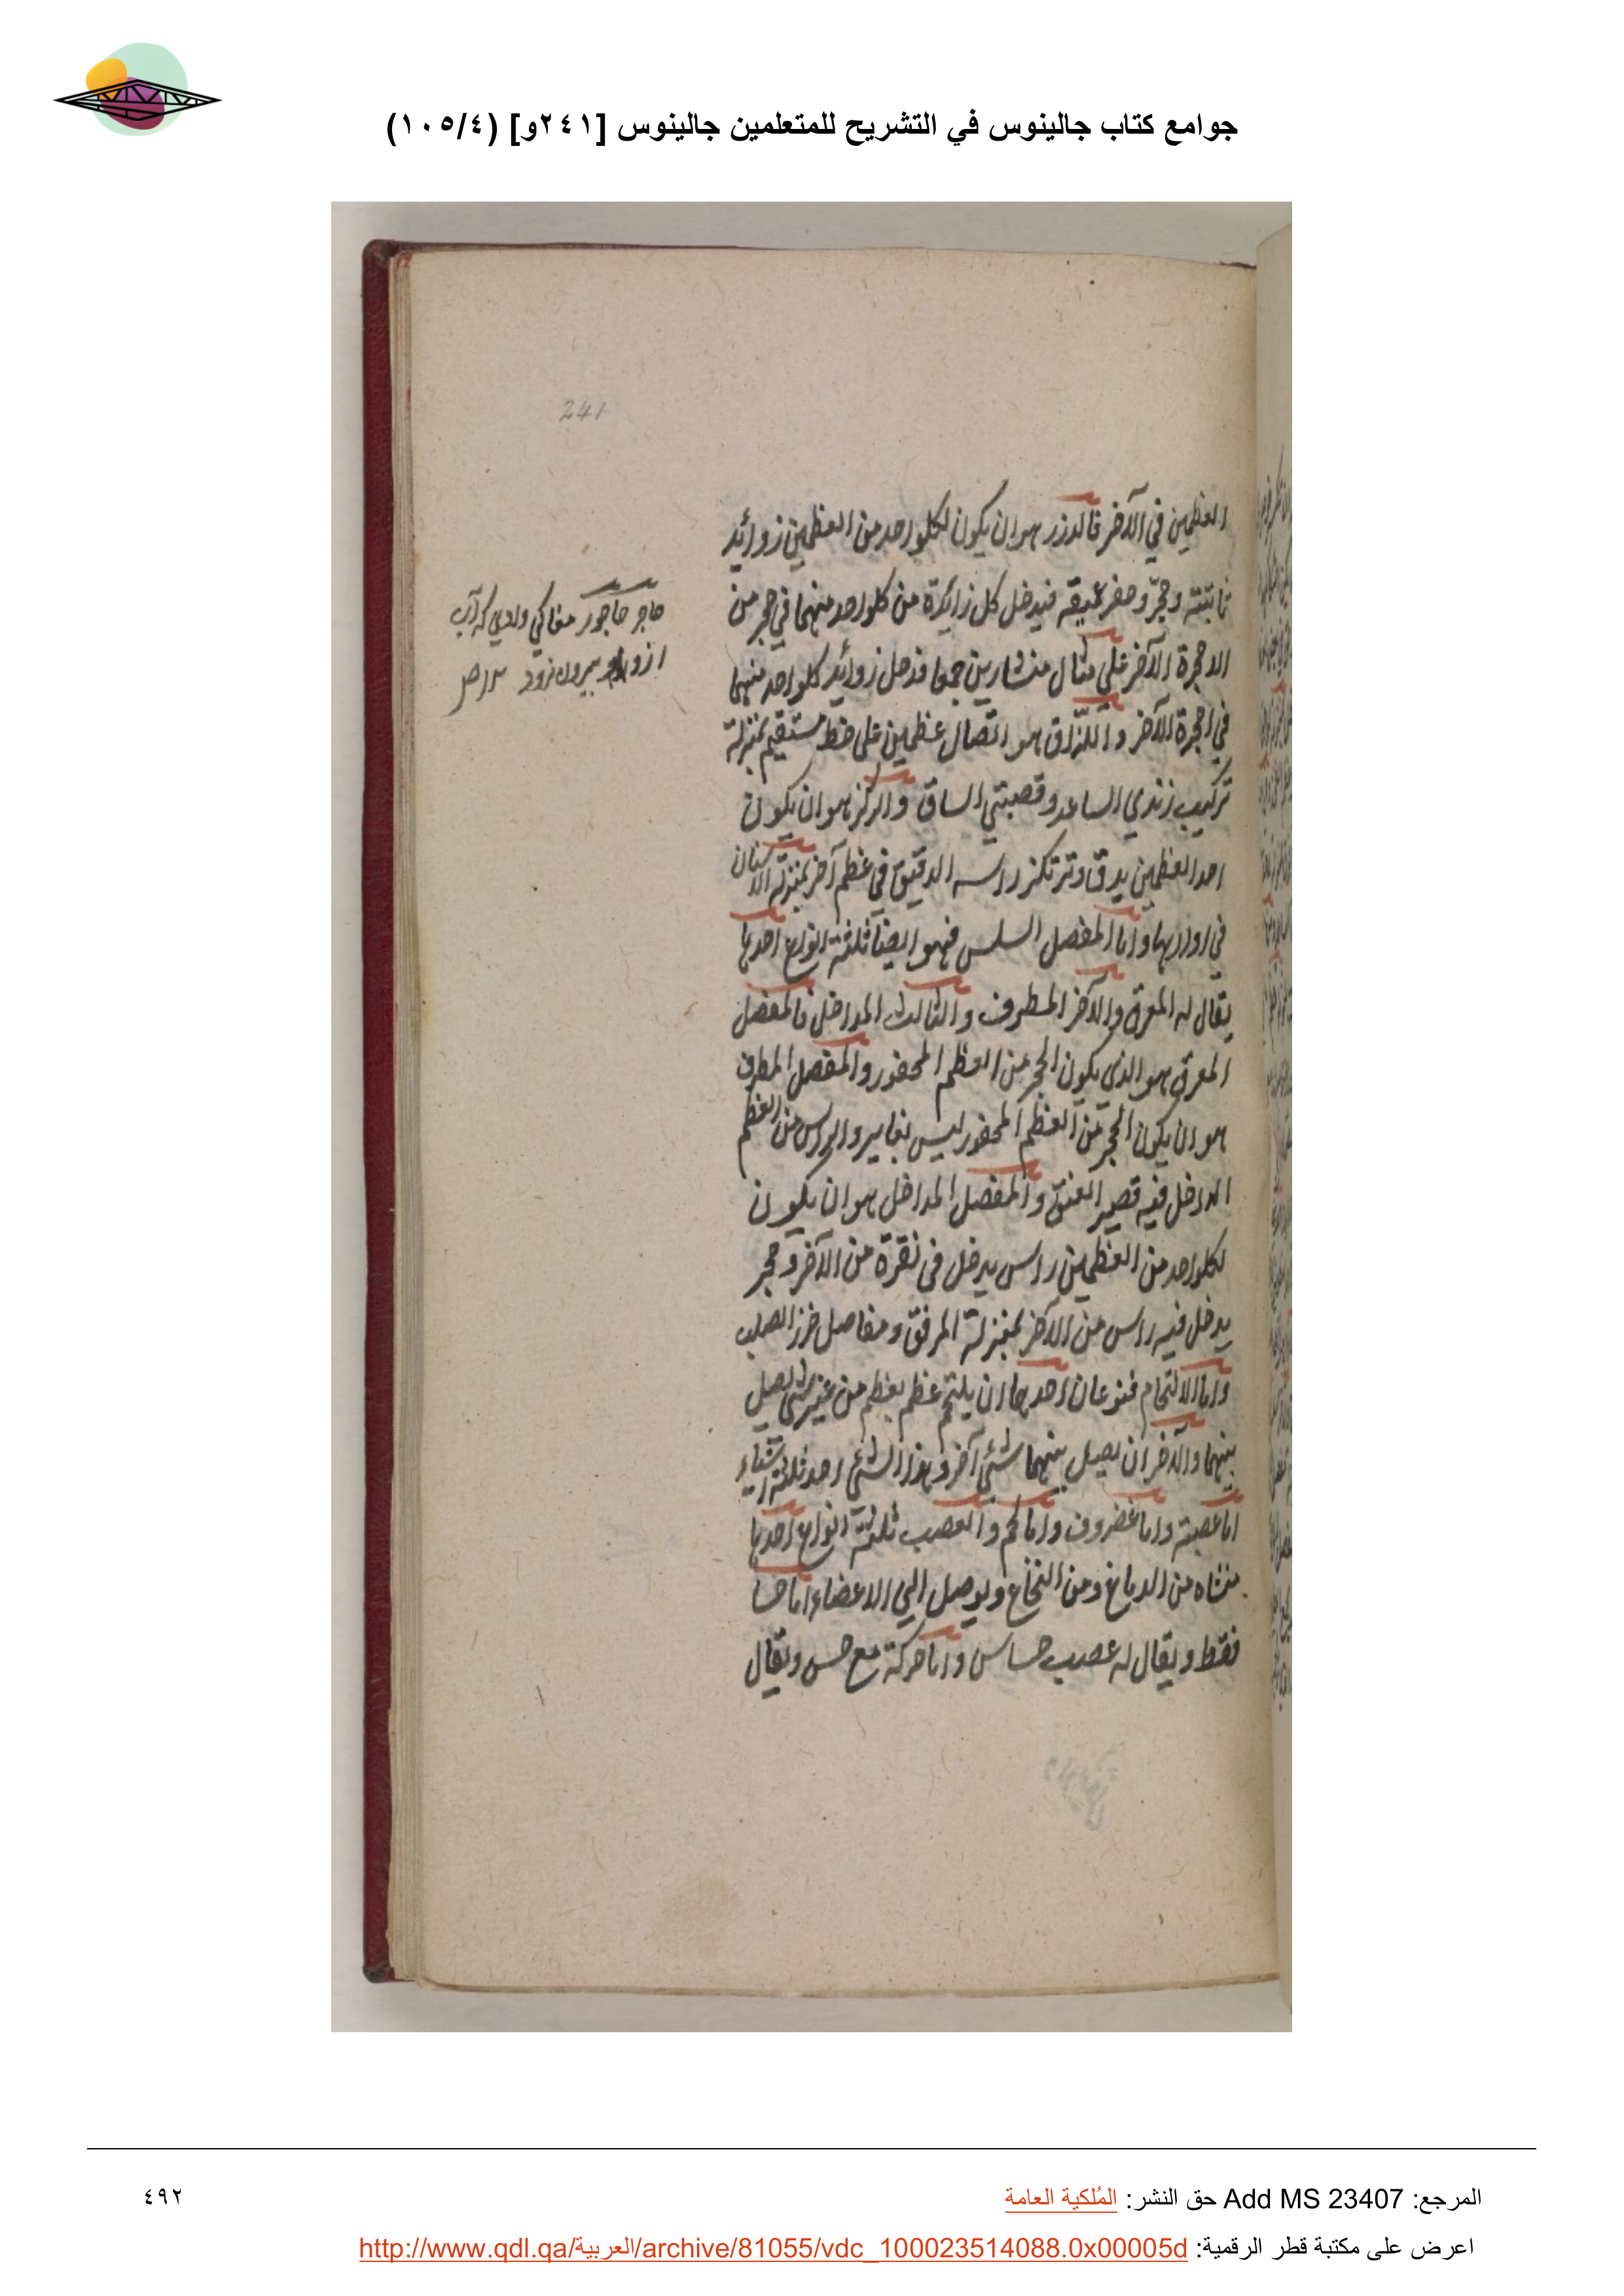 جوامع كتاب جالينوس في التشريح للمتعلمين جالينوس [٢٤١و] (١٠٥/٤)
241
العظمين في الآخر فالدرز هو ان يكون لكلواحد من العظمين زوائد
ثابتته وحجر وحفر عميقه فيدخل كل زايدة من كلواحد منهما في حجر من
الاحجرة الآخر علي مثال منشارين جمعا فدخل زوائد كلواحد منهما
في احجرة الآخر و اللزاق هو اتصال عظمين على خط مستقيم بمنزلة
تركيب زندي الساعد وقصبتي الساق والركز هو ان يكون
احد العظمين يدق وترتكز راسه الدقيق في عظم آخر بمنزلة الاسنان
في اواريها واما المفصل السلس فهو ايضا ثلثة انواع احدها
يقال له المعرق والآخر المطرف والثالث المداخل فالمفصل
المعرق هو الذي يكون الحجر من العظم المحفور والمفصل المطرف
هو ان يكون الحجر من العظم المحفور ليس بغاير والراس من العظم
الداخل فيه قصير العنق والمفصل المداخل هو ان يكون
لكلواحد من العظمين راس يدخل فى نقرة من الآخر وحجر
يدخل فيه راس من الاخر بمنزلة المرفق ومفاصل خرز الصلب
واما الالتحام فنوعان احدهما ان يلتحم عظم بعظم من غير شئ يصل
بينهما والاخر ان يصل بينهما شئ آخر وهذا الشئ احد ثلثة اشياء
اما عصبة واما غضروف واما لحم والعصب ثلثة انواع احدها
منشاه من الدماغ ومن النخاع ويوصل الي الاعضاء اما حسا
فقط ويقال له عصب حساس واما حركة مع حس ويقال
حاجر حاجور مغاكي وادي كه آب
ازو بيرون نرود
المرجع: Add MS 23407 حق النشر: المُلكية العامة
٤٩٢
اعرض على مكتبة قطر الرقمية: http://www.qdl.qa/العربية/archive/81055/vdc_100023514088.0x00005d